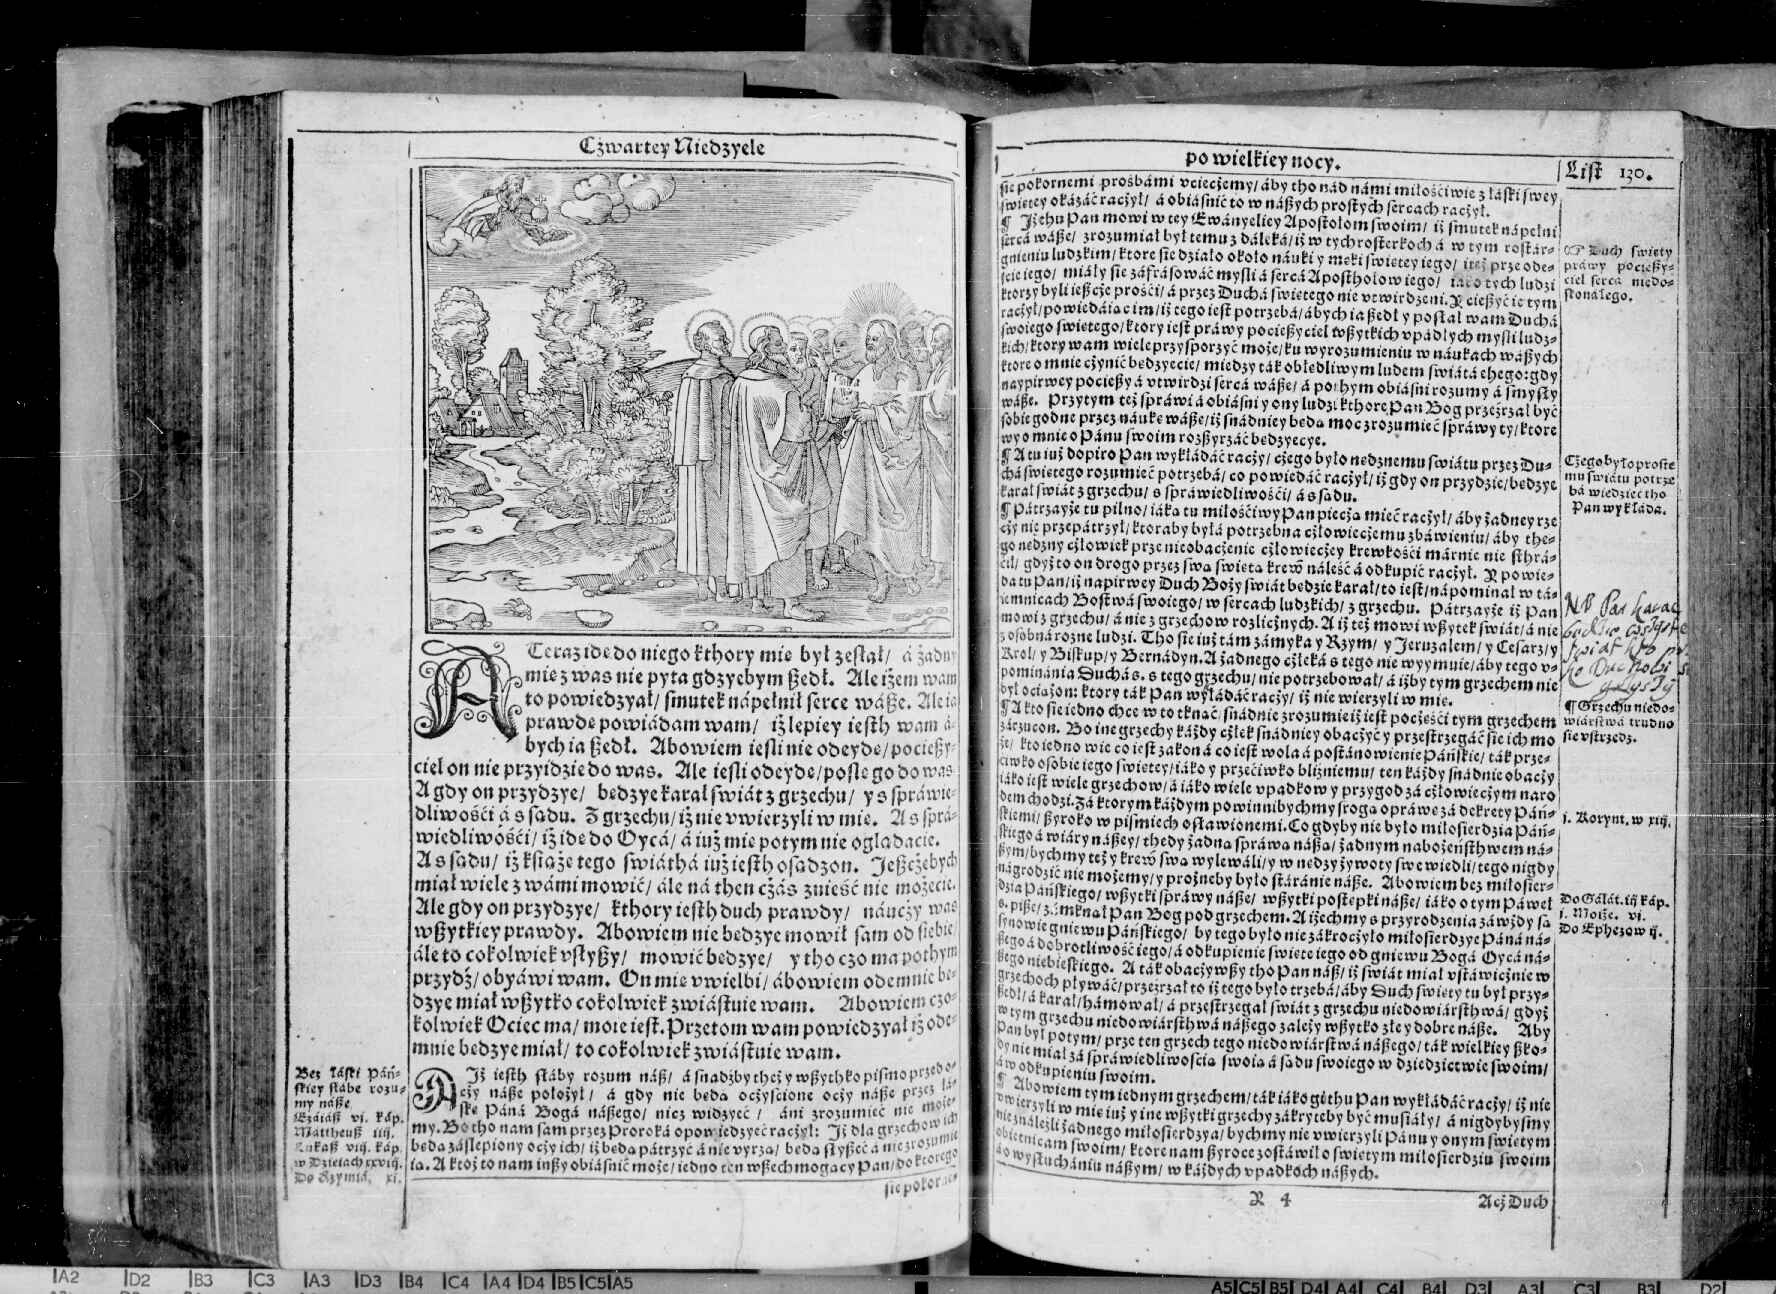 Cżwartey Niedzyele
A Teraz ide do niego kthory mie był zesłał/ á żadny
mie z was nie pyta gdzyebym ßedł. Ale iżem wam
to powiedzyał/ smutek nápełnił serce wáße. Ale ia
prawde powiádam wam/ iż lepiey iesth wam á-
bych ia ßedł. Abowiem iesli nie odeyde/ pocießy-
ciel on nie przyidzie do was. Ale iesli odeyde/ posle go do was
A gdy on przydzye/ bedzye karał swiát z grzechu/ y s spráwie-
dliwośći á s sadu. Z grzechu/ iż nie vwierzyli w mie. A s sprá-
wiedliwośći/ iż ide do Oycá/ á iuż mie potym nie ogladacie.
A s sadu/ iż książe tego swiáthá iuż iesth osadzon. Jeßcżebych
miał wiele z wámi mowić/ ále ná then cżás znieść nie możecie.
Ale gdy on przydzye/ kthory iesth duch prawdy/ náucży was
wßytkiey prawdy. Abowiem nie bedzye mowił sam od siebie/
ále to cokolwiek vsłyßy/ mowić bedzye/ y tho czo ma pothym
przydź/ obyáwi wam. On mie vwielbi/ ábowiem odemnie be-
dzye miał wßytko cokolwiek zwiástuie wam. Abowiem czo-
kolwiek Ociec ma/ moie iest. Przetom wam powiedzyał iż ode-
mnie bedzye miał/ to cokolwiek zwiástuie wam.
Bez łáski Páń-
skiey słabe rozu-
my náße
Ezáiáß vi. káp.
Mattheuß iiij.
Lukaß viij. káp.
w Dzieiach xxviij.
Do Rzymiá. xi.
A Jż iesth słáby rozum náß/ á snadźby też y wßythko pismo przed o-
cży náße położył/ á gdy nie beda ocżyścione ocży náße przez łá-
ske Páná Bogá náßego/ nicz widzyeć/ áni zrozumieć nie może-
my. Bo tho nam sam przez Proroká opowiedzyeć racżył: Jż dla grzechow ich
beda záslepiony ocży ich/ iż beda pátrzyć á nie vyrza/ beda słyßeć á nie zrozumie
ia. A ktoż to nam inßy obiásnić może/ iedno ten wßechmogacy Pan/ do ktorego
sie pokorne-
po wielkiey nocy.
List 130.
sie pokornemi prośbámi vciecżemy/ áby tho nád námi miłośćiwie z łaski swey
swietey okázáć racżył/ á obiásnić to w náßych prostych sercach racżył.
¶ Jż ehu Pan mowi w tey Ewányeliey Apostołom swoim/ iż smutek nápełni
sercá wáße/ zrozumiał był temu z dáleká/ iż w tych rosterkoch á w tym rostár-
gnieniu ludzkim/ ktore sie działo około náuki y meki swietey iego/ też prze ode-
ście iego/ miáły sie záfrásowáć mysli á sercá Aposthołow iego/ iáko tych ludzi
ktorzy byli ießcże prośći/ á przez Duchá swietego nie vtwirdzeni. Y cießyć ie tym
racżył/ powiedáiac im/ iż tego iest potrzebá/ ábych ia ßedł y posłał wam Duchá
swoiego swietego/ ktory iest práwy pocießyciel wßytkich vpádłych mysli ludz-
kich/ ktory wam wiele przysporzyć może/ ku wyrozumieniu w náukach wáßych
ktore o mnie cżynić bedzyecie/ miedzy ták obłedliwym ludem swiátá thego: gdy
naypirwey pocießy á vtwirdzi sercá wáße/ á pothym obiáśni rozumy á smysły
wáße. Przytym też spráwi á obiáśni y ony ludzi kthore Pan Bog przeźrzał być
sobie godne przez náuke wáße/ iż snádniey beda moc zrozumieć spráwy ty/ ktore
wy o mnie o Pánu swoim rozßyrzáć bedzyecye.
¶ A tu iuż dopiro Pan wykłádáć racży/ cżego było nedznemu swiátu przez Du-
chá swietego rozumieć potrzebá/ co powiedáć racżył/ iż gdy on przydzie/ bedzye
karał swiát z grzechu/ s spráwiedliwośći/ á s sadu.
¶ Pátrzayże tu pilno/ iáka tu miłośćiwy Pan piecża mieć racżył/ áby żadney rze
cży nie przepátrzył/ ktoraby byłá potrzebna cżłowiecżemu zbáwieniu/ áby the-
go nedzny cżłowiek prze nieobacżenie cżłowiecżey krewkośći márnie nie sthrá-
cił/ gdyż to on drogo przez swa swieta krew náleść á odkupić racżył. Y powie-
da tu Pan/ iż napirwey Duch Boży swiát bedzie karał/ to iest/ nápominał w tá-
iemnicach Bostwá swoiego/ w sercach ludzkich/ z grzechu. Pátrzayże iż Pan
mowi z grzechu/ á nie z grzechow rozlicżnych. A iż też mowi wßytek swiát/ á nie
z osobná rozne ludzi. Tho sie iuż tám zámyka y Rzym/ y Jeruzalem/ y Cesarz/ y
Krol/ y Biskup/ y Bernádyn. A żadnego cżłeká s tego nie wyymuie/ áby tego v-
pominánia Duchá s. s tego grzechu/ nie potrzebował/ á iżby tym grzechem nie
był ociażon: ktory ták Pan wykłádáć racży/ iż nie wierzyli w mie.
¶ A kto sie iedno chce w to tknać/ snádnie zrozumie iż iest pocżęści tym grzechem
zárzucon. Bo ine grzechy káżdy cżłek snádniey obacżyć y przestrzegáć sie ich mo
że/ kto iedno wie co iest zakon á co iest wola á postánowienie Páńskie/ ták prze-
ciwko osobie iego swietey/ iáko y przećiwko bliźniemu/ ten káżdy snádnie obacży
iáko iest wiele grzechow/ á iáko wiele vpadkow y przygod zá cżłowiecżym naro
dem chodzi. Zá ktorym káżdym powinnibychmy sroga opráwe zá dekrety Páń-
skiemi/ ßyroko w pismiech osławionemi. Co gdyby nie było miłosierdzia Páń-
skiego á wiáry náßey/ thedy żadna spráwa náßa/ żadnym nabożeństhwem ná-
ßym/ bychmy też y krew swa wylewáli/ y w nedzy żywoty swe wiedli/ tego nigdy
nágrodzić nie możemy/ y prożneby było stáránie náße. Abowiem bez miłosier-
dzia Páńskiego/ wßytki spráwy náße/ wßytki postepki náße/ iáko o tym Páweł
s. piße/ zámknał Pan Bog pod grzechem. A iżechmy s przyrodzenia záwżdy sa
synowie gniewu Páńskiego/ by tego było nie zákrocżyło miłosierdzye Páná ná-
ßego á dobrotliwość iego/ á odkupienie swiete iego od gniewu Bogá Oycá ná-
ßego niebieskiego. A ták obacżywßy tho Pan náß/ iż swiát miał vstáwicżnie w
grzechoch pływáć/ przeźrzał to iż tego było trzebá/ áby Duch swiety tu był przy-
ßedł/ á karał/ hámował/ á przestrzegał swiát z grzechu niedowiársthwá/ gdyż
w tym grzechu niedowiársthwá náßego zależy wßytko złe y dobre náße. Aby
Pan był potym/ prze ten grzech tego niedowiárstwá náßego/ ták wielkiey ßko-
dy nie miał zá spráwiedliwościa swoia á sadu swoiego w dziedzictwie swoim/
á w odkupieniu swoim.
¶ Abowiem tym iednym grzechem/ ták iáko gi thu Pan wykłádáć racży/ iż nie
vwierzyli w mie iuż y ine wßytki grzechy zákryteby być musiáły/ á nigdybysmy
nie ználeźli żadnego miłosierdzya/ bychmy nie vwierzyli Pánu y onym swietym
obietnicam swoim/ ktore nam ßyroce zostáwił o swietym miłosierdziu swoim
á o wysłuchániu náßym/ w káżdych vpadkoch náßych.
R 4
Acż Duch
Duch swiety
práwy pocießy-
ciel sercá niedo-
skonáłego.
Cżego było proste
mu swiátu potrze
bá wiedzieć tho
Pan wykłáda.
NB Pan karac
bedzie
swiat
¶ Grzechu niedo-
wiárstwá trudno
sie vstrzedz.
j. Korynt. w xiij.
Do Gálát. iij káp.
j. Moiże. vi.
Do Ephezow ij.
A2 D2 B3 C3 A3 D3 B4 C4 A4 D4 B5 C5 A5
A5 C5 B5 D4 A4 C4 B4 D3 A3 C3 B3 D2